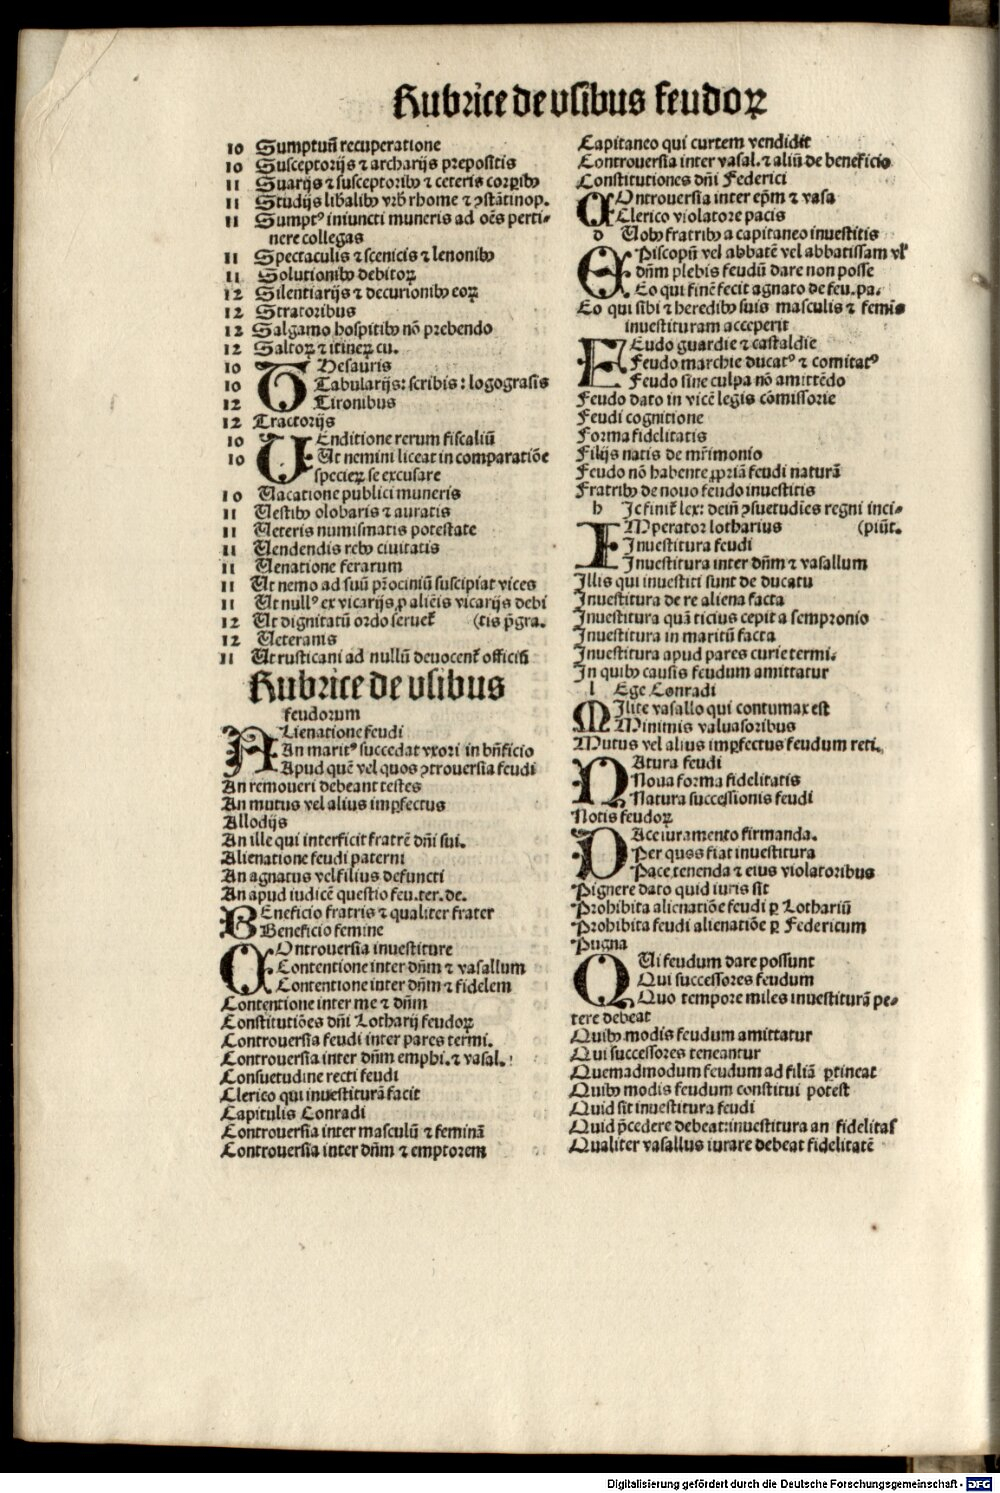 Rubrice de vsibus feudoꝝ
10 Sumptuũ recuperatione
10 Susceptorijs ⁊ archarijs prepositis
11 Suarijs ⁊ susceptoribꝰ ⁊ ceteris corꝑibꝰ
11 Studijs libalibꝰ vrb̃ rhome ⁊ ꝯstãtinop.
11 Sumptꝰ iniuncti muneris ad oẽs perti-
nere collegas
11 Spectaculis ⁊ scenicis ⁊ lenonibꝰ
11 Solutionibꝰ debitoꝝ
12 Silentiarijs ⁊ decurionibꝰ eoꝝ
12 Stratoribus
12 Salgamo hospitibꝰ nõ prebendo
12 Saltoꝝ ⁊ itineꝝ cu.
10 THesauris
10 Tabularijs: scribis: logograsis
12 Tironibus
12 Tractorijs
10 VEnditione rerum fiscaliũ
10 Ut nemini liceat in comparatiõe
specieꝝ se excusare
10 Vacatione publici muneris
11 Vestibꝰ olobaris ⁊ auratis
11 Veteris numismatis potestate
11 Vendendis rebꝰ ciuitatis
11 Venatione ferarum
11 Ut nemo ad suũ pr̃ociniũ suscipiat vices
11 Ut nullꝰ ex vicarijs ꝓ alicĩs vicarijs debi
12 Ut dignitatũ ordo seruet̃ (tis p̃gra.
12 Veteranis
11 Ut rusticani ad nullũ deuocent̃ officiũ
Rubrice de vsibus
feudorum
ALienatione feudi
An maritꝰ succedat vxori in bñficio
Apud quẽ vel quos ꝯtrouersia feudi
An remoueri debeant testes
An mutus vel alius imꝑfectus
Allodijs
An ille qui interficit fratrẽ dñi sui.
Alienatione feudi paterni
An agnatus vel filius defuncti
An apud iudicẽ questio feu.ter.de.
BEneficio fratris ⁊ qualiter frater
Beneficio femine
COntrouersia inuestiture
Contentione inter dñm ⁊ vasallum
Contentione inter dñm ⁊ fidelem
Contentione inter me ⁊ dñm
Constitutiões dñi Lotharij feudoꝝ
Controuersia feudi inter pares termi.
Controuersia inter dñm emphi.⁊ vasal.
Consuetudine recti feudi
Clerico qui inuestiturã facit
Capitulis Conradi
Controuersia inter masculũ ⁊ feminã
Controuersia inter dñm ⁊ emptorem
Capitaneo qui curtem vendidit
Controuersia inter vasal.⁊ aliũ de beneficio
Constitutiones dñi Federici
COntrouersia inter ep̃m ⁊ vasa
Clerico violatore pacis
d Uobꝰ fratribꝰ a capitaneo inuestitis
EPiscopũ vel abbatẽ vel abbatissam vel̃
dñm plebis feudũ dare non posse
Eo qui finẽ fecit agnato de feu.pa.
Eo qui sibi ⁊ heredibꝰ suis masculis ⁊ femĩs
inuestituram acceperit
FEudo guardie ⁊ castaldie
Feudo marchie ducatꝰ ⁊ comitatꝰ
Feudo sine culpa nõ amittẽdo
Feudo dato in vicẽ legis cõmissorie
Feudi cognitione
Forma fidelitatis
Filijs natis de mr̃imonio
Feudo nõ habente ꝓpriã feudi naturã
Fratribꝰ de nouo feudo inuestitis
h Ic finit̃ lex: deiñ ꝯsuetudĩes regni inci-
IMperator lotharius (piũt.
Inuestitura feudi
Inuestitura inter dñm ⁊ vasallum
Illis qui inuestiti sunt de ducatu
Inuestitura de re aliena facta
Inuestitura quã ticius cepit a sempronio
Inuestitura in maritũ facta
Inuestitura apud pares curie termi.
In quibꝰ causis feudum amittatur
l Ege Conradi
MIlite vasallo qui contumax est
Minimis valuasoribus
Mutus vel alius imꝑfectus feudum reti.
NAtura feudi
Noua forma fidelitatis
Natura successionis feudi
Notis feudoꝝ
PAce iuramento firmanda.
Per quos fiat inuestitura
Pace tenenda ⁊ eius violatoribus
Pignere dato quid iuris sit
Prohibita alienatiõe feudi ꝑ Lothariũ
Prohibita feudi alienatiõe ꝑ Federicum
Pugna
QUi feudum dare possunt
Qui successores feudum
Quo tempore miles inuestiturã pe-
tere debeat
Quibꝰ modis feudum amittatur
Qui successores teneantur
Quemadmodum feudum ad filiã ꝑtineat
Quibꝰ modis feudum constitui potest
Quid sit inuestitura feudi
Quid p̃cedere debeat:inuestitura an fidelitas
Qualiter vasallus iurare debeat fidelitatẽ
Digitalisierung gefördert durch die Deutsche Forschungsgemeinschaft - DFG